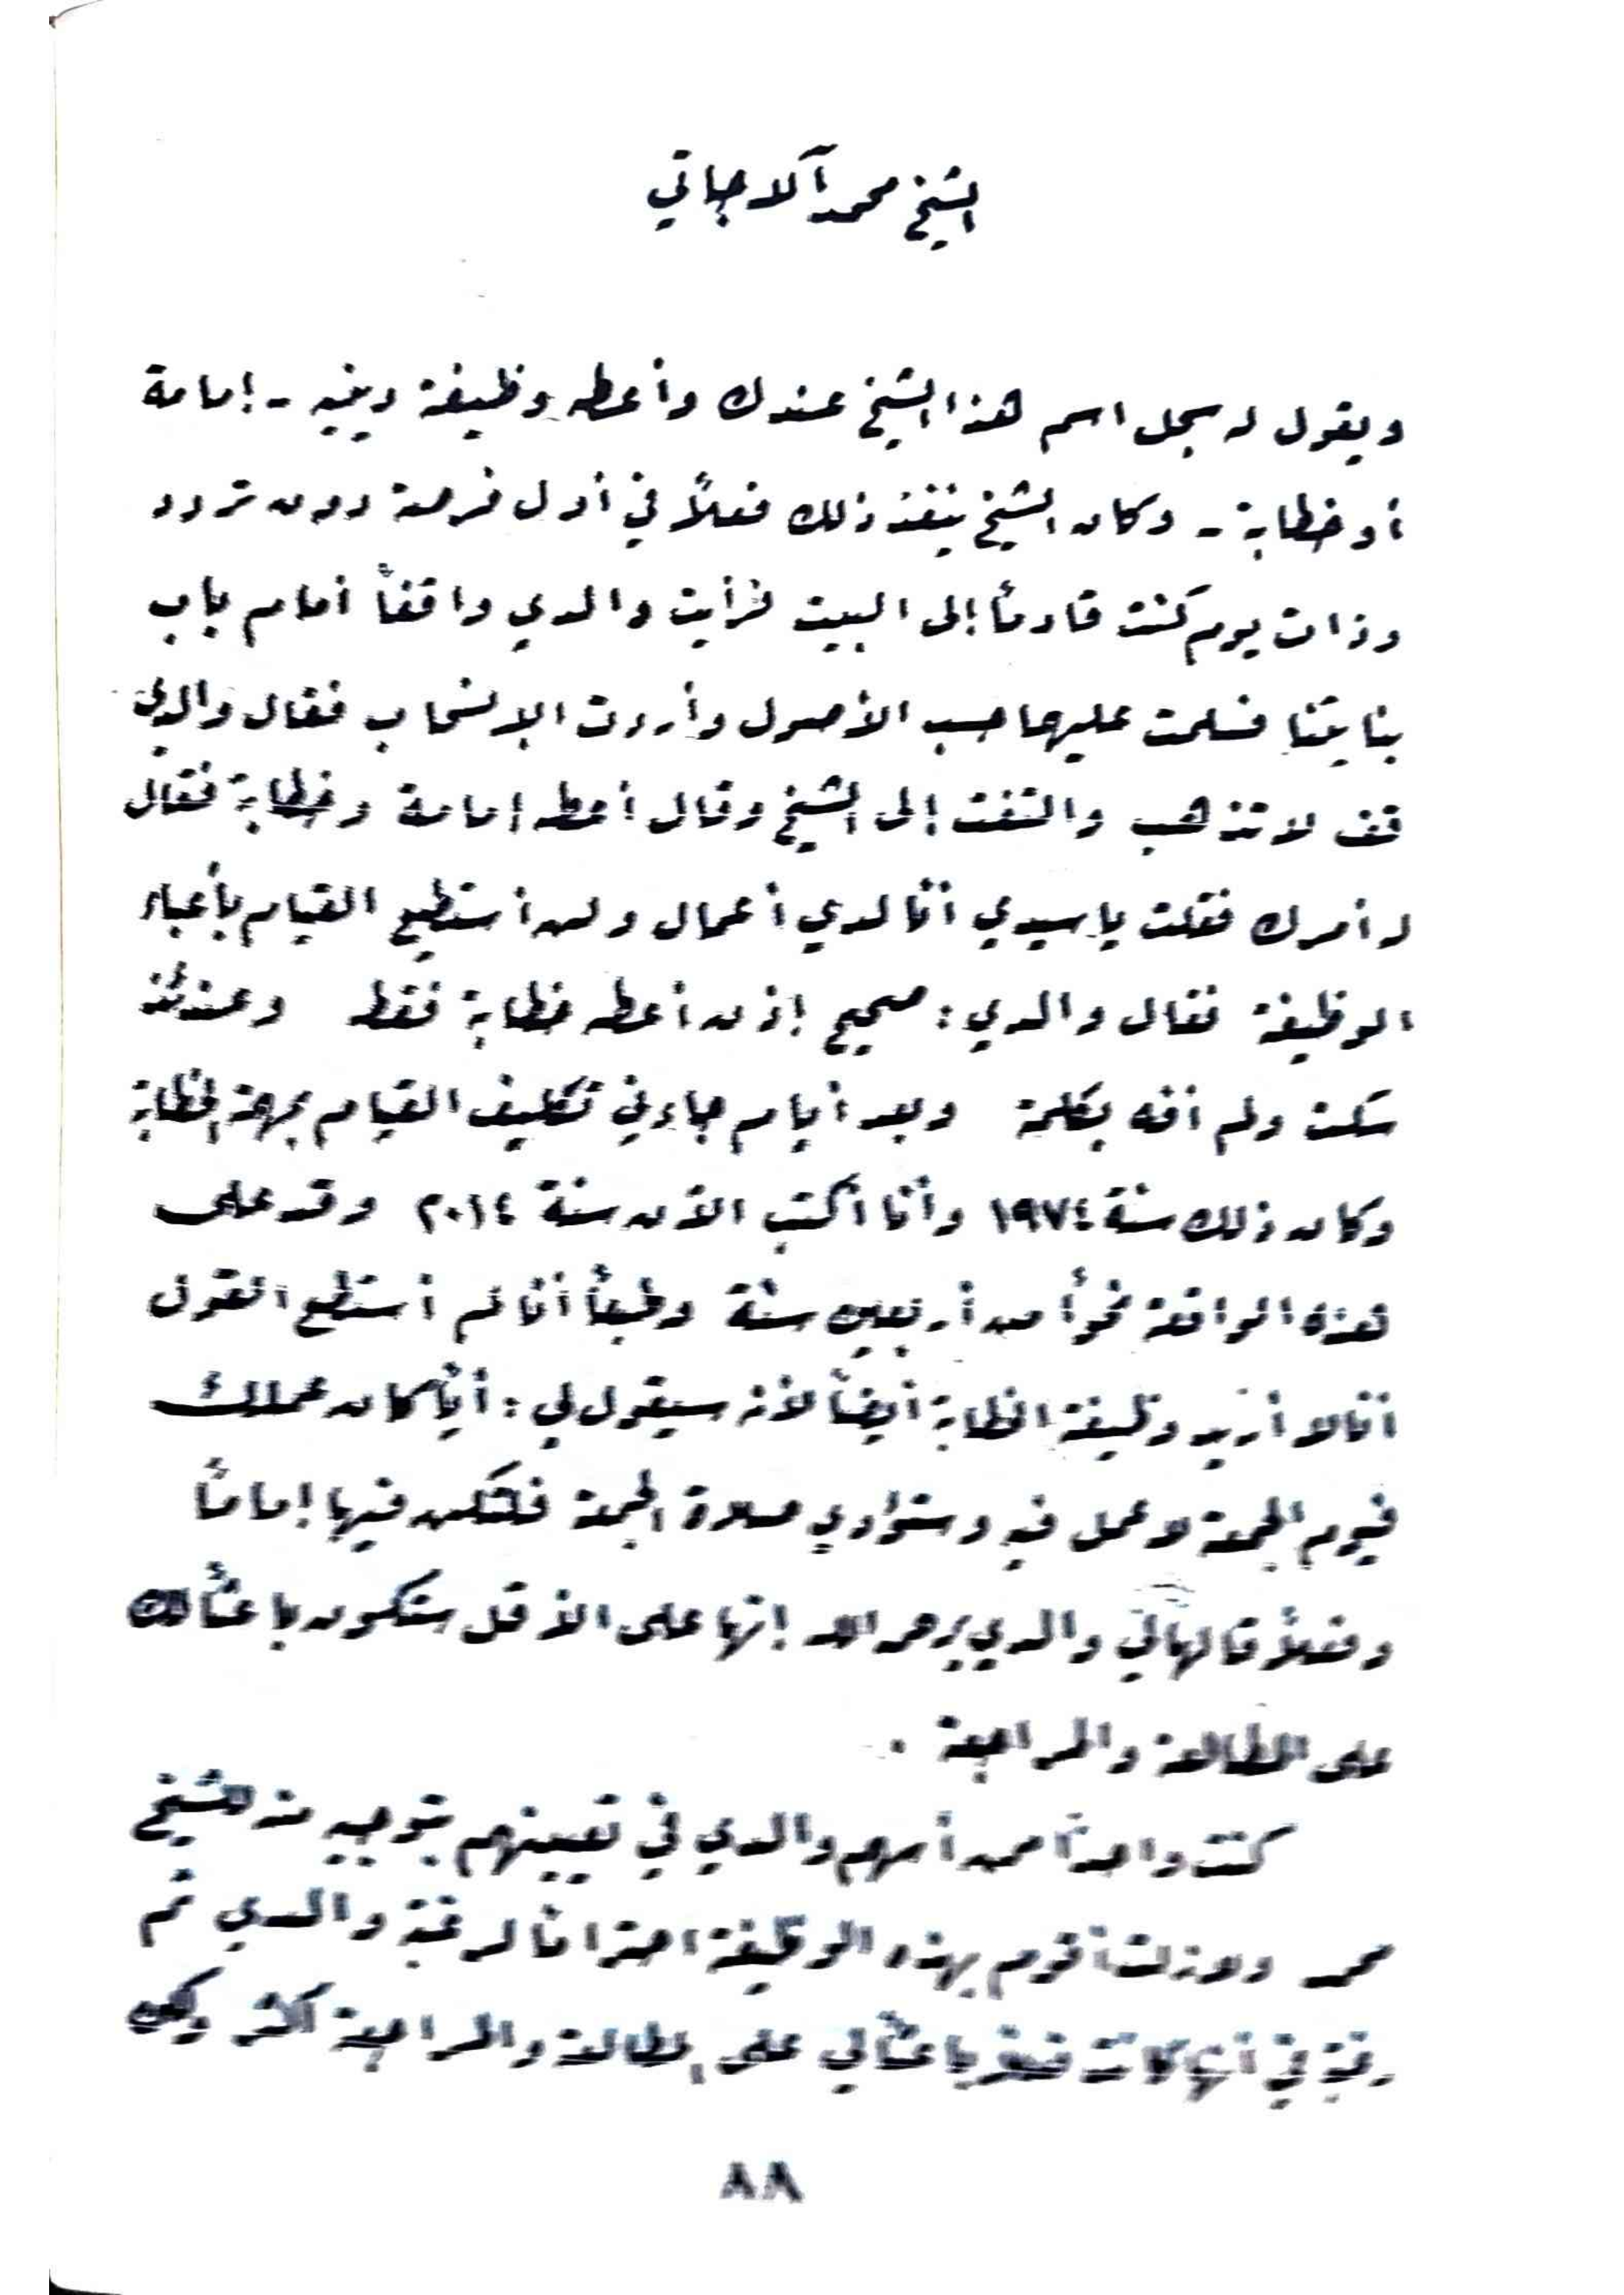 الشيخ محمد آلاجاتي
ويقول له سجل اسم هذا الشيخ عندك وأعطه وظيفة دينيه - إمامة
أو خطابة - وكان الشيخ ينفذ ذلك فعلاً في أول فرصة دون تردد
وذات يوم كنت قادماً إلى البيت فرأيت والدي واقفاً أمام باب
بنايتنا فسلمت عليهما حسب الأصول وأردت الإنسحاب فقال والدي
قف لا تذهب والتفت إلى الشيخ وقال أعطه إمامة وخطابة فقال
له أمرك فقلت يا سيدي أنا لدي أعمال ولن أستطيع القيام بأعباء
الوظيفة فقال والدي: صحيح إذن أعطه خطابة فقط وعندئذ
سكت ولم أفه بكلمة وبعد أيام جاءني تكليف القيام بمهمة الخطابة
وكان ذلك سنة ١٩٧٤ وأنا أكتب الآن سنة ٢٠١٤ وقد على
هذه الواقعة نحواً من أربعين سنة وطبعاً أنا لم أستطع القول
أنا لا أريد وظيفة الخطابة أيضاً لأنه سيقول لي: أياً كان عملك
فيوم الجمعة لا عمل فيه وستؤدي صلاة الجمعة فلتكن فيها إماماً
وفعلاً قالها لي والدي يرحمه الله إنها على الأقل ستكون باعثاً لك
على المطالعة والمراجعة .
كنت واحداً ممن أسهم والدي في تعيينهم بتوجيه منه للشيخ
محمد ولازلت أقوم بهذه الوظيفة احتراماً لرغبة والدي ثم
رغبة في أنها كانت باعثاً لي على المطالعة والمراجعة أكثر
٨٨